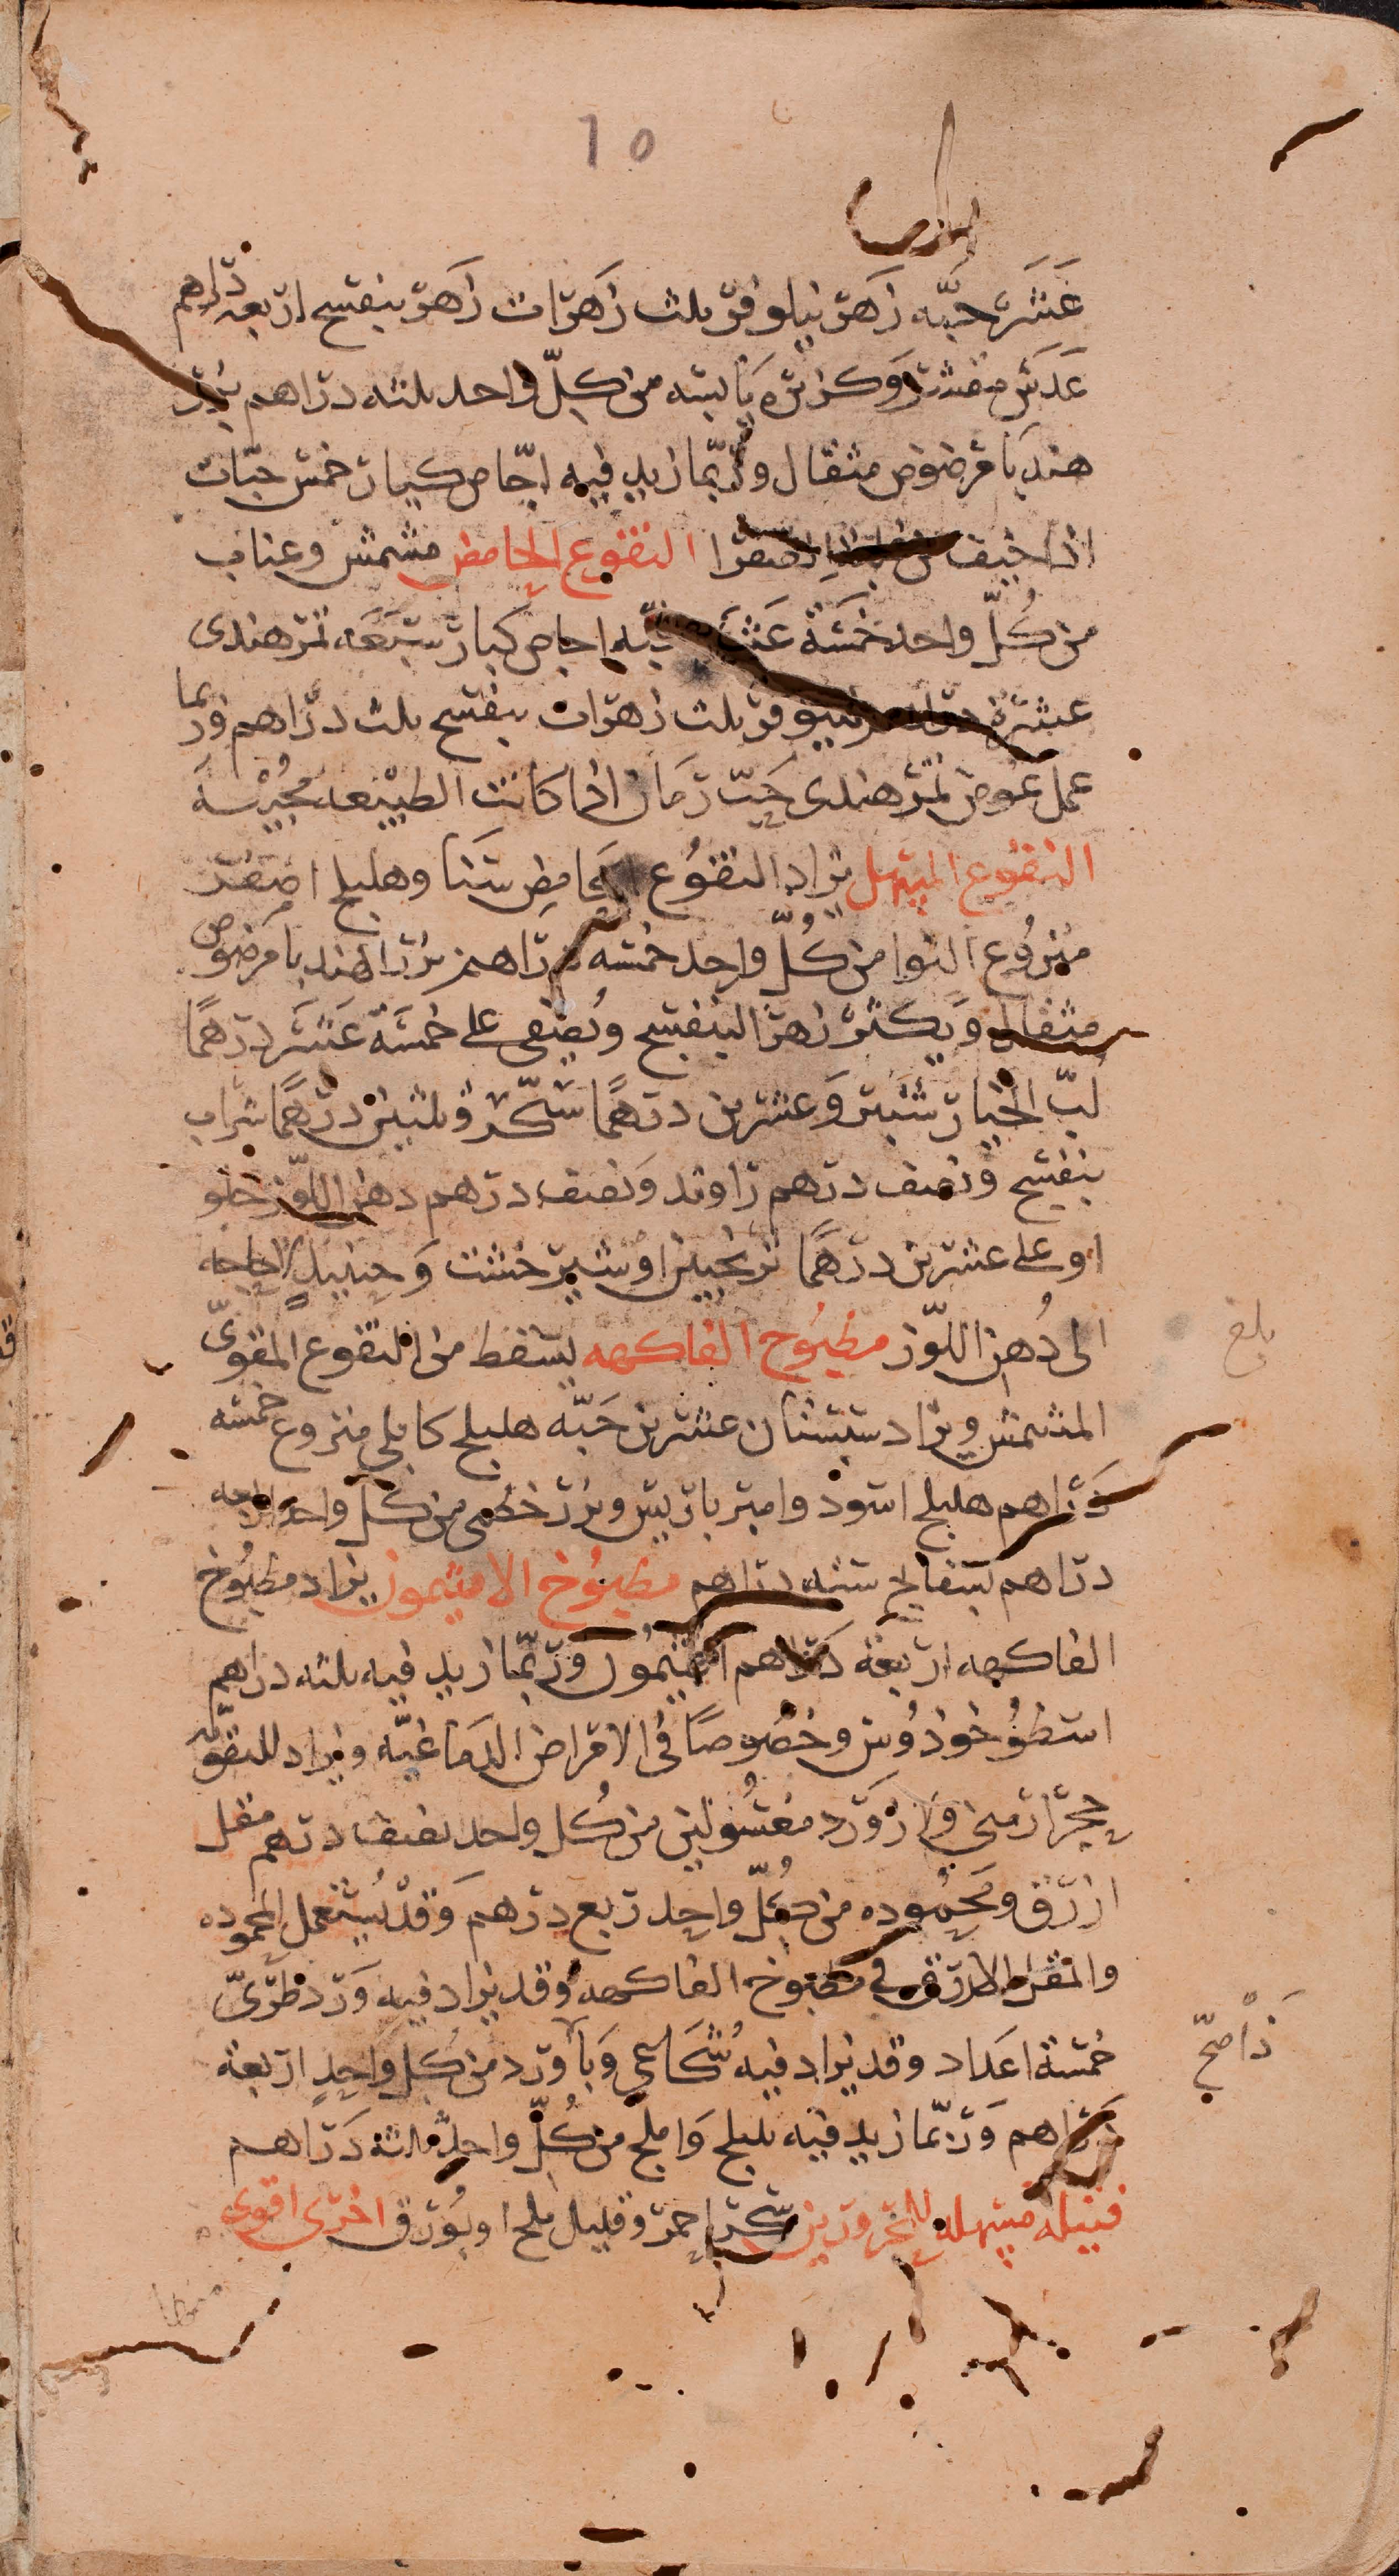 عَشَرَ حبّه زَهَر نيلوفر ثلث زَهَرات زَهَر بنفسج اربعه دراهم
عَدَس مقشر وَكزبَرَه يَابسَه من كلّ واحد ثلثه دَراهم بزر
هندبا مَرضوض مثقال وَرُبّما زيد فيه اجّاص كبار خمس حبّات
اذا خيف من الصَفرا النقوع الحامض مشمش وعناب
من كُلّ واحد خَمسَة عَشَر حبّه اجاص كبار سَبعَه تمر هندى
عشرَة دراهم نيلوفر ثلث زهَرات بنفسج ثلث دراهم وربما
عمل عوض تمر هندى حَبّ رمَان اذا كانت الطبيْعه مُجيْبَه
النقوع المسهل يزاد النقوُع الحَامض سَنَا وهليلج اصفر
منزوُع النوا من كُلّ واحد خمسَه دراهم بزر الهندبا مَرضوض
مثقال وَيكثر زهر البنفسج ويُصَفى على خمسَة عَشَر درهمًا
لبّ الخيار شَنبَر وَعشرين درهمًا سَكّر وثلثين درهمًا شراب
بنفسج وَنصف درهم راوند وَنصف درهم دهن اللّوز حلو
او على عشرين درهمًا ترنجبين او شير خشت وَحينيذٍ لا حاجه
الى دُهن اللّوز مطبوُخ الفاكهه يسَقط من النقوع المقوىّ
المشمش ويزاد سبستان عشرين حَبّه هليلج كابلى منزوع خمسَه
دَراهم هليلج اسَود وامبرباريس وبزر خطمى من كلّ واحد اربعه
دراهم بسَفايج سته دراهم مطبوُخ الافتيمون يزاد مطبوُخ
الفاكهه اربعَة دَراهم افتيمُون وَرُبّما زيد فيه ثلثه دراهم
اسَطوُخودُوس وخصُوصًا فى الامراض الدمَاغيّه ويزاد للتقويّه
حجر ارمنى وَلازوَرد مغسُولين من كُل واحد نصف درهم مقل
ازرق ومَحموُده من كُلّ واحد ربع درهم وَقدْ يُستعمل المحموده
والمقل الازرق فى مطبوخ الفاكهه وقد يزاد فيه وَرد طرىّ
خمسَة اعَداد وقد يزاد فيه شُكَاعى وَباورد من كُل واَحدٍ اربَعة
دَراهم وَرُبّما زيد فيه بليلج وَاملج من كُلّ واحد ثلاثة دَراهم
فتيله مسَهله للمحرورين سكر احمر وقليل ملح او بُورق اخرى اقوى
بلغ